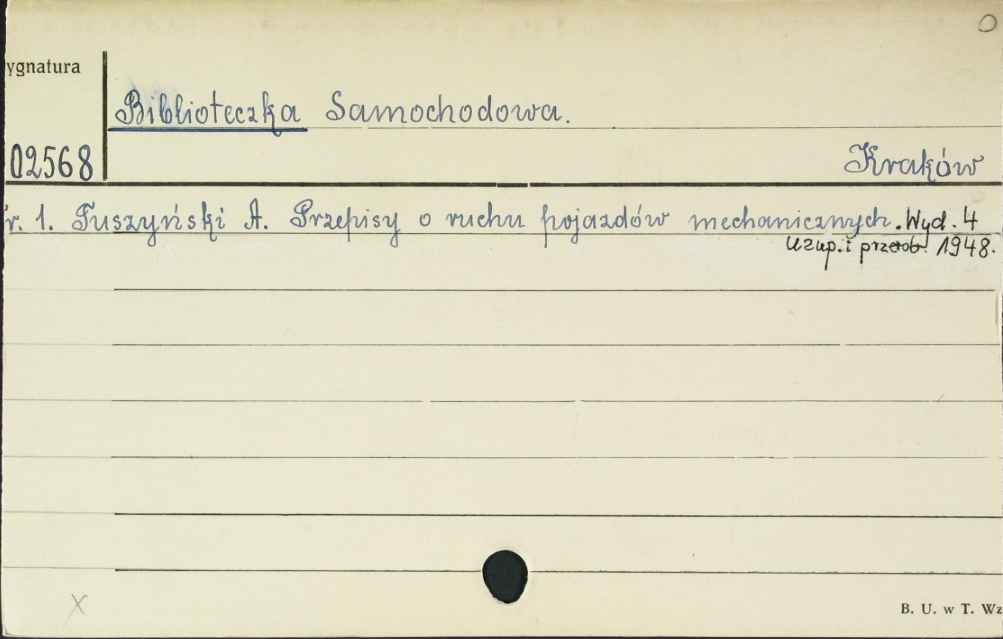 ygnatura
Biblioteczka Samochodowa.
02568
Kraków
r. 1. Tuszyński A. Przepisy o ruchu pojazdów mechanicznych. Wyd. 4
uzup. i przerob. 1948.
B. U. w T. Wz